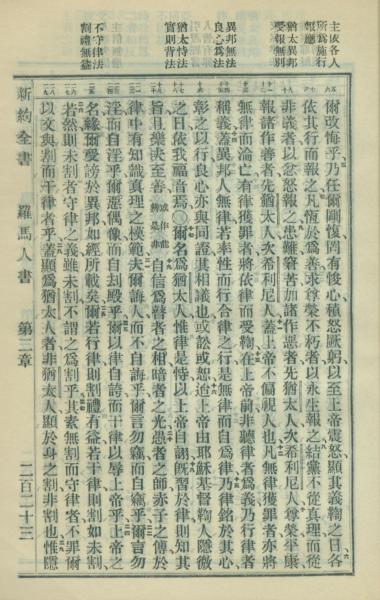 主依各人
所為施行
報應
猶太異邦
受報無別
異邦無法
良心為法
猶太恃法
實則背法
不守律法
割禮無益
爾改悔乎乃任爾剛愎罔有悛心積怒厥躬以至上帝震怒顯其義鞫之日各
依其行而報之凡恆於為善求尊榮不朽者以永生報之結黨不從真理而從
非義者以忿怒報之患難窘苦加諸作惡者先猶太人次希利尼人尊榮平康
報諸作善者先猶太人次希利尼人蓋上帝不偏視人也凡無律獲罪者亦將
無律而淪亡有律獲罪者將依律而受鞫在上帝前非聽律者為義乃行律者
稱義蓋異邦人無律若率性而行合律之行是無律而自為律乃律銘於其心
彰之以行良心亦與同證其相議也或訟或恕迨上帝由耶穌基督鞫人隱微
之日依我福音焉〇爾名為猶太人惟律是恃以上帝自詡既習於律則知其
旨且樂從至善或作能辨是非自信為瞽者之相暗者之光愚者之師赤子之傅於
律中有知識真理之模範夫爾誨人而不自誨乎爾言勿竊而自竊乎爾言勿
淫而自淫乎爾惡偶像而自刦殿乎爾以律自誇而干律以辱上帝乎上帝之
名緣爾受謗於異邦如經所載矣爾若行律則割禮有益若干律則割如未割
若然則未割者守律之義雖未割不謂之為割乎其素無割而守律者不罪爾
以文與割而干律者乎蓋顯為猶太人者非猶太人顯於身之割非割也惟隱
新約全書 羅馬人書 第三章 二百二十三